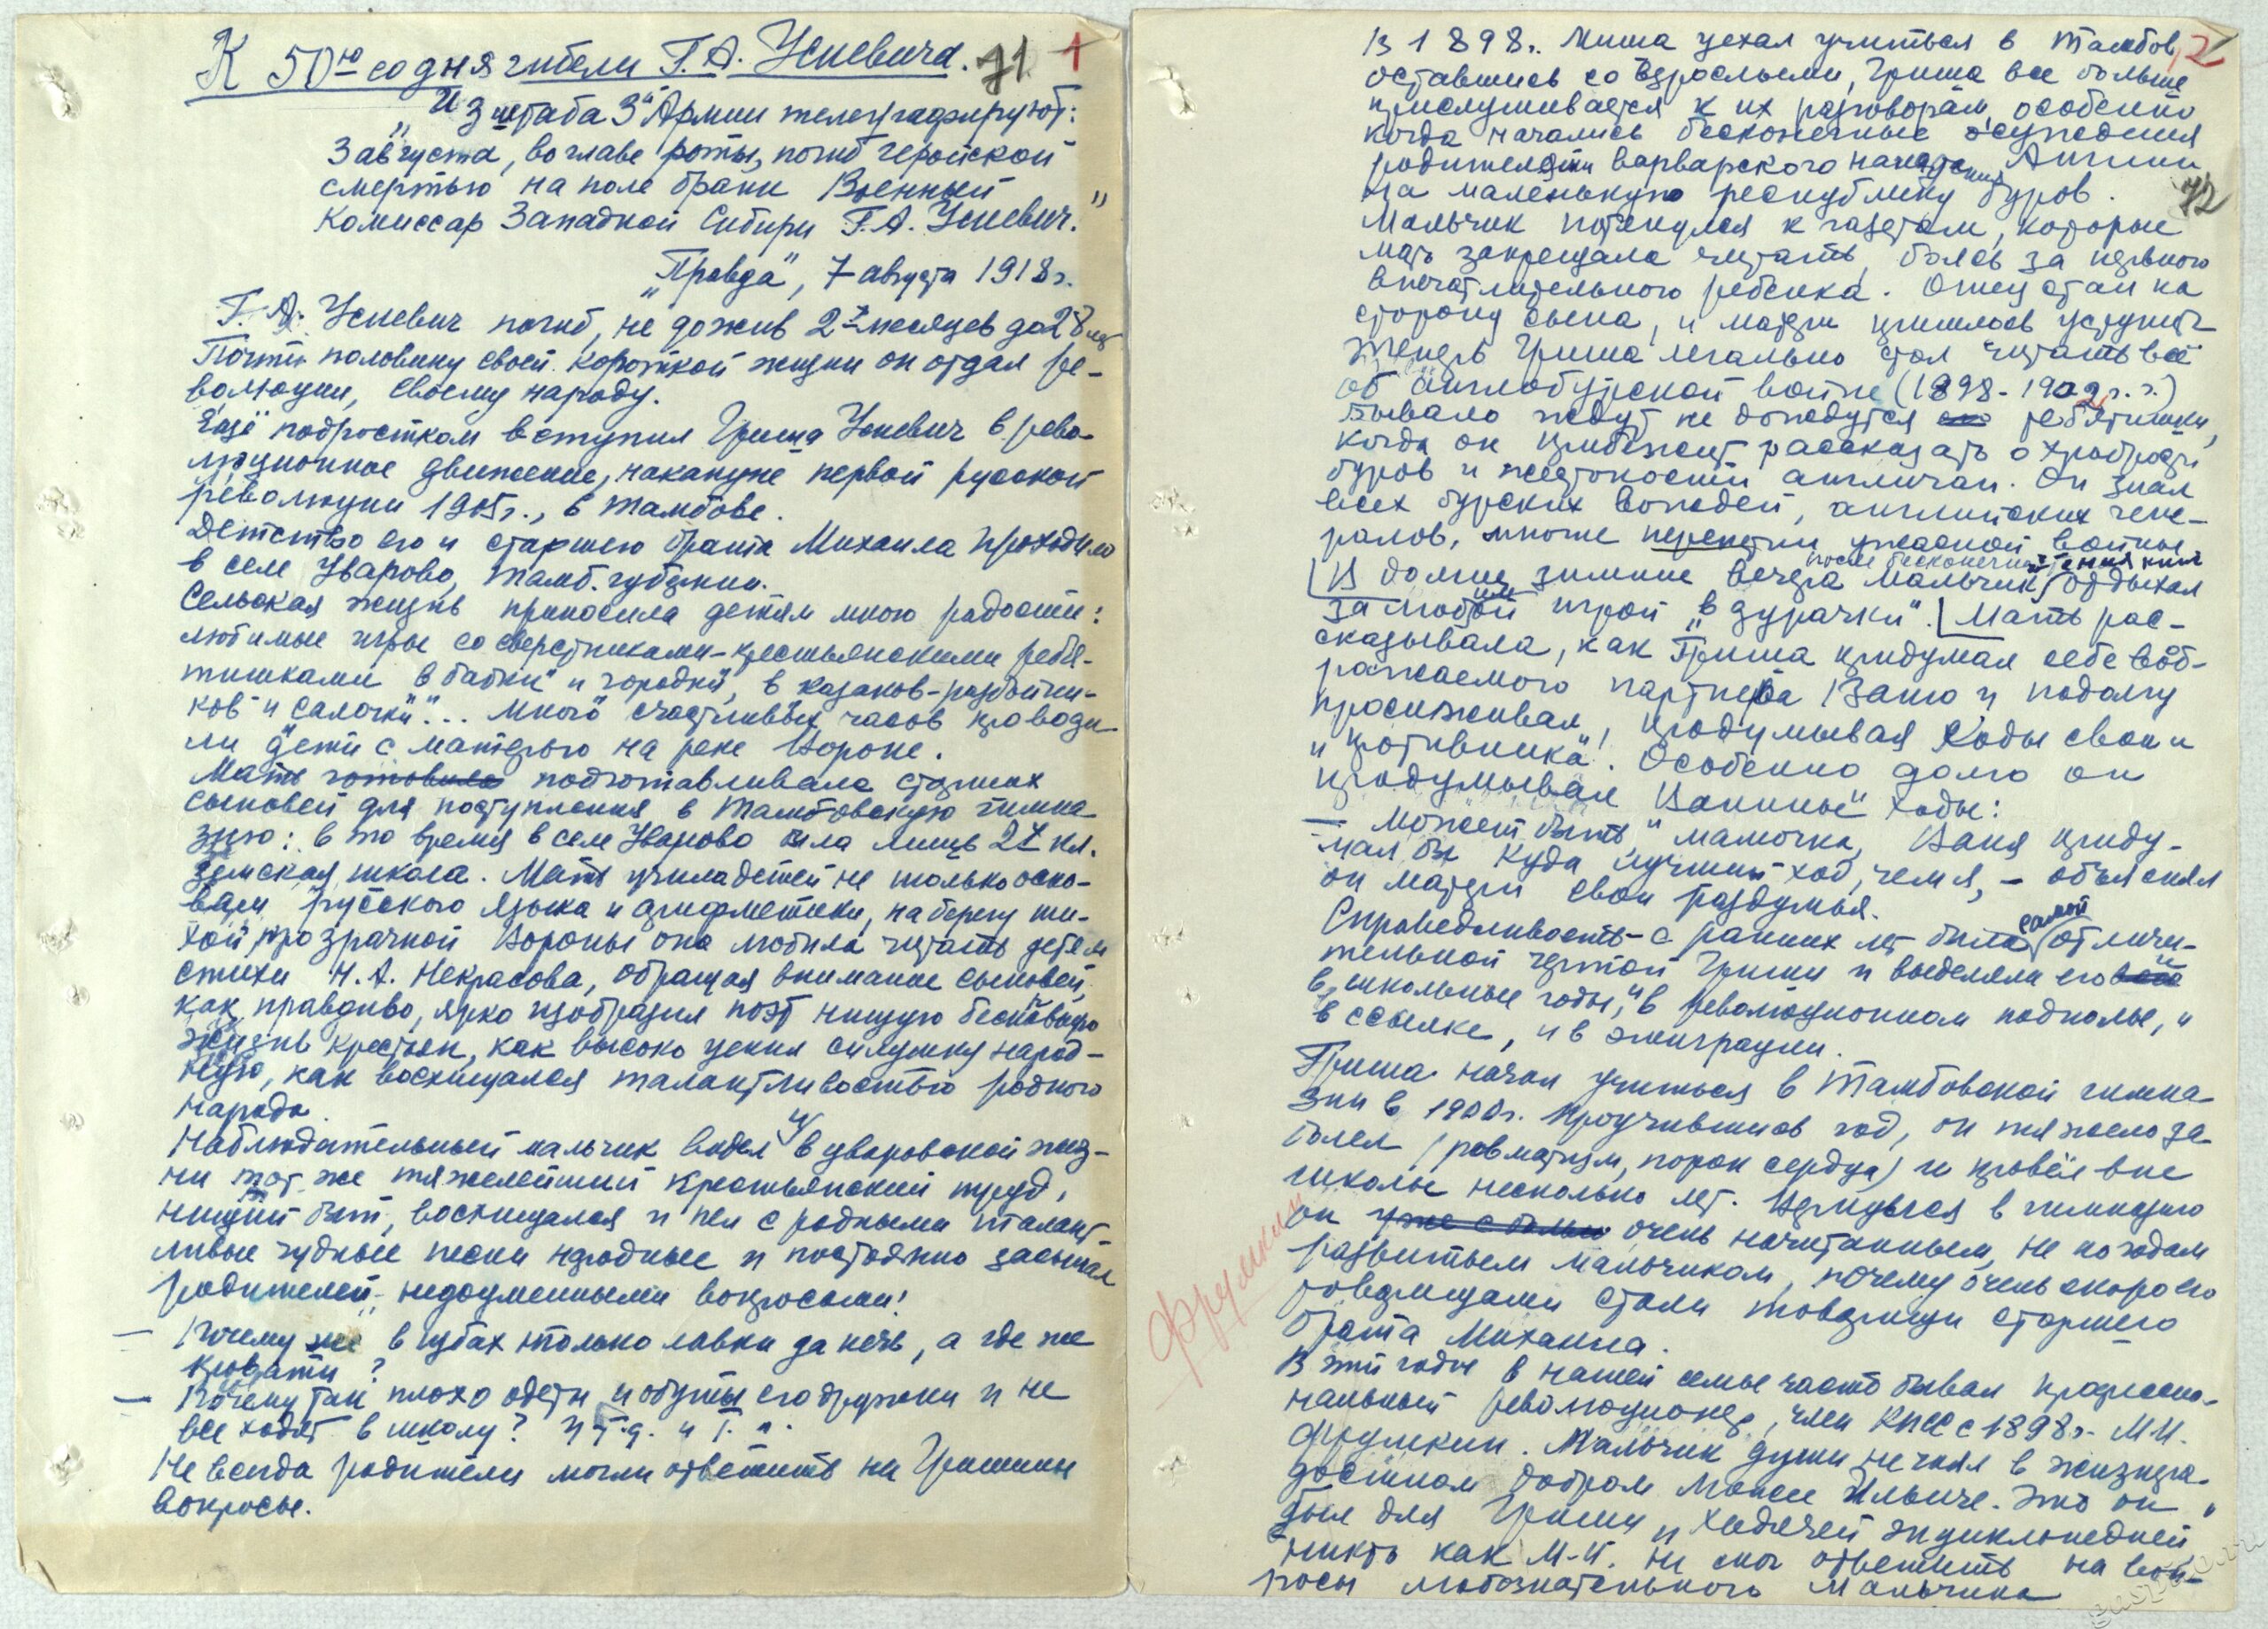 К 50ю со дня гибели Г.А. Усиевича. 71 1
„Из штаба 3й Армии телеграфируют:
3 августа, во главе роты, погиб геройской
смертью на поле брани Военный
Комиссар Западной Сибири Г.А. Усиевич."
„Правда", 7 августа 1918 г.
Г.А. Усиевич погиб, не дожив 2х месяцев до 28 лет
Почти половину своей короткой жизни он отдал ре-
волюции, своему народу.
Ещё подростком вступил Гриша Усиевич в рево-
люционное движение, накануне первой русской
революции 1905 г., в Тамбове.
Детство его и старшего брата Михаила проходило
в селе Уварово, Тамб. губернии.
Сельская жизнь приносила детям много радости:
любимые игры со сверстниками-крестьянскими ребя-
тишками в „бабки" и „городки", в казаков-разбойни-
ков и „салочки"... Много счастливых часов проводи-
ли дети с матерью на реке Вороне.
Мать готовила подготавливала старших
сыновей для поступления в Тамбовскую гимна-
зию: в то время в селе Уварово была лишь 2х кл.
земская школа. Мать учила детей не только осно-
вам русского языка и арифметики, на берегу ти-
хой прозрачной Вороны она любила читать детям
стихи Н.А. Некрасова, обращая внимание сыновей,
как правдиво, ярко изобразил поэт нищую бесправную
жизнь крестьян, как высоко ценил силушку народ-
ную, как восхищался талантливостью родного
народа.
Наблюдательный мальчик видел и в уваровской жиз-
ни тот же тяжелейший крестьянский труд,
нищий быт, восхищался и пел с родными талант-
ливые чудные песни народные и постоянно засыпал
родителей недоуменными вопросами:
— Почему же в избах только лавки да печь, а где же
кровати?
— Почему так плохо одеты и обуты его дружки и не
все ходят в школу? И т.д. и т.п.
Не всегда родители могли ответить на Гришины
вопросы.
В 1898 г. Миша уехал учиться в Тамбов, 2
оставшись со взрослыми, Гриша все больше
прислушивается к их разговорам, особенно
когда начались бесконечные осуждения
родителями варварского нападения Англии
на маленькую республику буров. 72
Мальчик потянулся к газетам, которые
мать запрещала читать, боясь за нервного
впечатлительного ребенка. Отец стал на
сторону сына, и матери пришлось уступить
Теперь Гриша легально стал читать всё
об англобурской войне (1898-1902 г.г.)
Бывало ждут не дождутся его ребятишки,
когда он прибежит рассказать о храбрости
буров и жестокости англичан. Он знал
всех бурских вождей, английских гене-
ралов, многие перипетии ужасной войны
после бесконечных чтения книг
В долгие зимние вечера мальчик отдыхал
за любой игрой „в дурачки". Мать рас-
сказывала, как Гриша придумал себе вооб-
ражаемого партнера Ваню и подолгу
просиживал, продумывая ходы свои и
„противника". Особенно долго он
продумывал „Ванины" ходы:
— Может быть, мамочка, Ваня приду-
мал бы куда лучший ход, чем я, – объяснял
он матери свои раздумья.
Справедливость-с ранних лет была самой отличи-
тельной чертой Гриши и выделяла его
в школьные годы, и в революционном подполье, и
в ссылке, и в эмиграции.
Гриша начал учиться в Тамбовской гимна-
зии в 1900 г. Проучившись год, он тяжело за-
болел (ревматизм, порок сердца) и провёл вне
школы несколько лет. Вернулся в гимназию
он уже с больш очень начитанным, не по годам
развитым мальчиком, почему очень скоро его
товарищами стали товарищи старшего
брата Михаила.
Фрумкин
В эти годы в нашей семье часто бывал професcио-
нальный революционер, член КПСС с 1898 г. М.И.
Фрумкин. Мальчик души не чаял в жизнера-
достном добром Моисее Ильиче. Это он
был для Гриши „ходячей энциклопедией"
никто как М.И. не смог ответить на воп-
росы любознательного мальчика